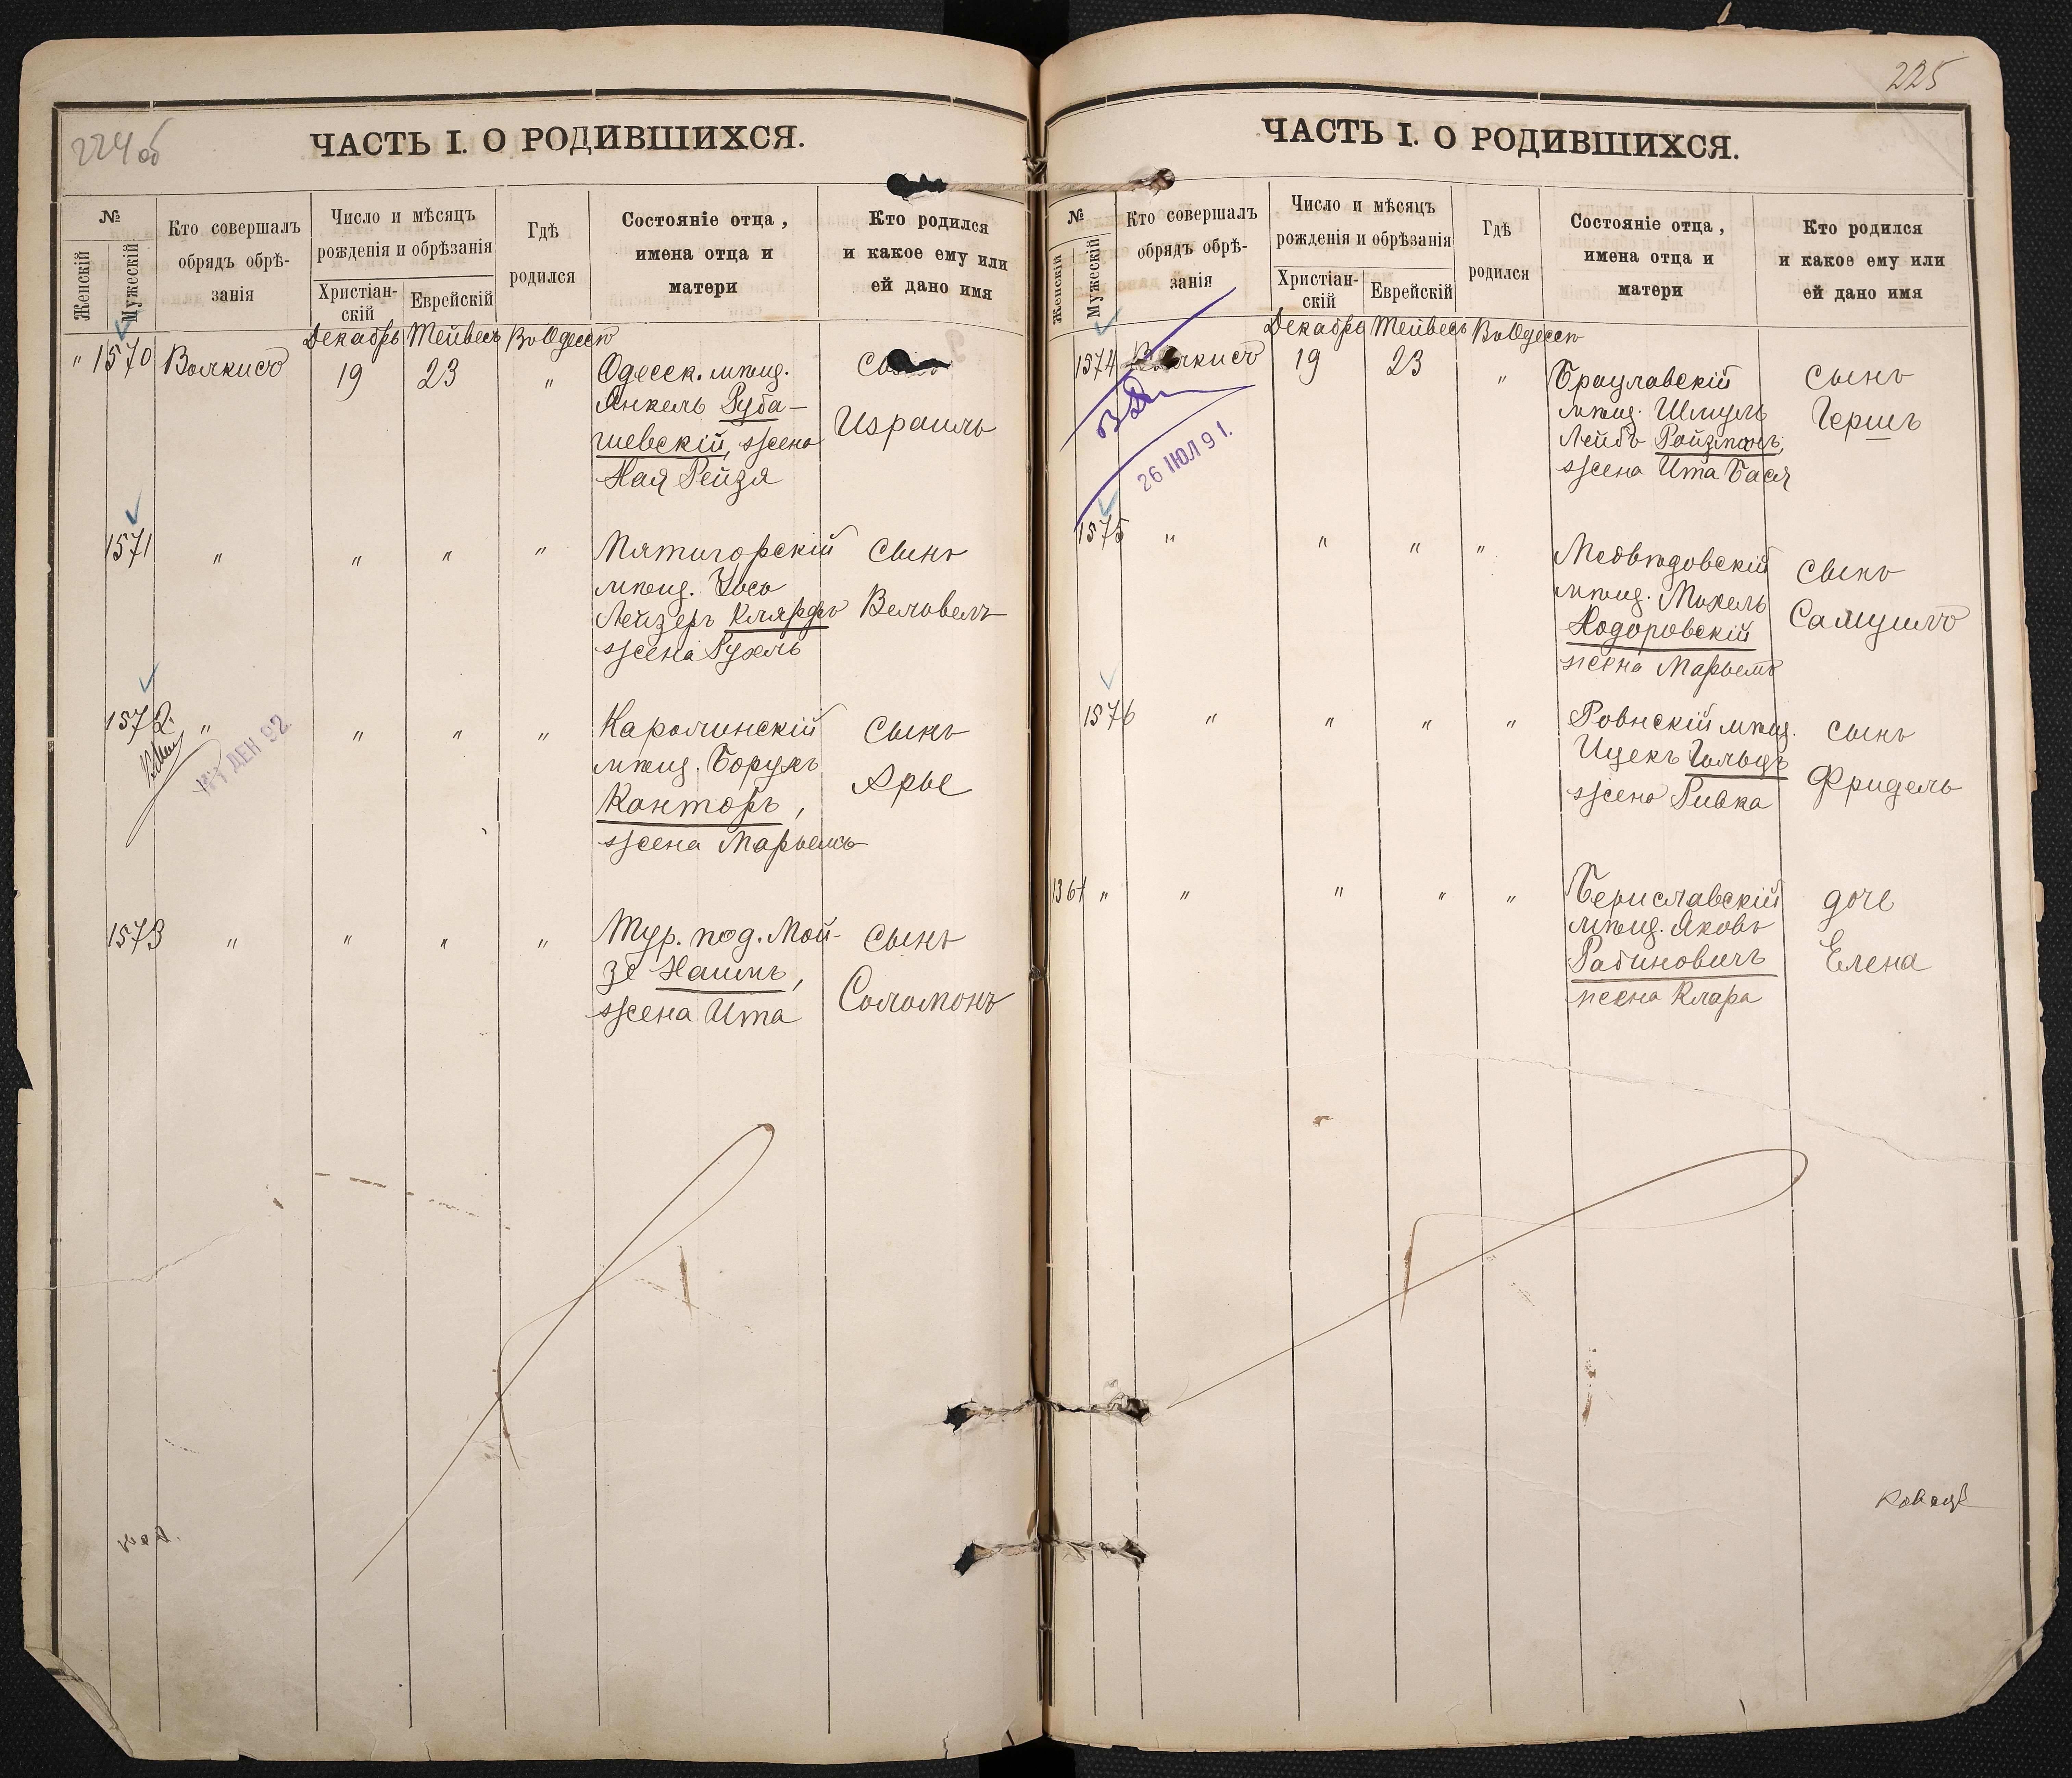 224 об
ЧАСТЬ I. О РОДИВШИХСЯ.
№
Женскій
Мужескій
Кто совершалъ
обрядъ обрѣ-
занія
Число и мѣсяцъ
рожденія и обрѣзанія
Христіан-
скій
Еврейскій
Гдѣ
родился
Состояніе отца,
имена отца и
матери
Кто родился
и какое ему или
ей дано имя
Декабрь Тейвесъ Въ Одессѣ
" 1570 Волкисъ 19 23 "
Одесск. мѣщ.
Янкель Руба-
шевскій, жена
Хая Рейзя
Израиль
1571 " " " "
Пятигорскій
мѣщ. Іось
Лейзеръ
жена Рухль
сынъ
Велвелъ
1572. " " " "
ДЕК 92
Каролинскій
мѣщ. Борухъ
Канторъ,
жена Марьемъ
сынъ
Арье
1573 " " " "
Тур. под. Мой-
зе Наимъ,
жена Ита
сынъ
Соломонъ
225
ЧАСТЬ I. О РОДИВШИХСЯ.
№
Женскій
Мужескій
Кто совершалъ
обрядъ обрѣ-
занія
Число и мѣсяцъ
рожденія и обрѣзанія
Христіан-
скій
Еврейскій
Гдѣ
родился
Состояніе отца,
имена отца и
матери
Кто родился
и какое ему или
ей дано имя
Декабрь Тейвесъ Въ Одессѣ
1574 Волкисъ 19 23 "
26 ІЮЛ 91.
Брацлавскій
мѣщ. Шмуль
Лейбъ Ройзманъ,
жена Ита Бася
сынъ
Гершъ
1575 " " " "
Медвѣдовскій
мѣщ. Мохель
Ходоровскій
жена Марьемъ
сынъ
Самуилъ
1576 " " " "
Ровнскій мѣщ.
Ицекъ Гольцъ
жена Ривка
сынъ
Фридель
1361 " " " " "
Бериславскій
мѣщ. Яковъ
Рабиновичъ
жена Клара
дочь
Елена